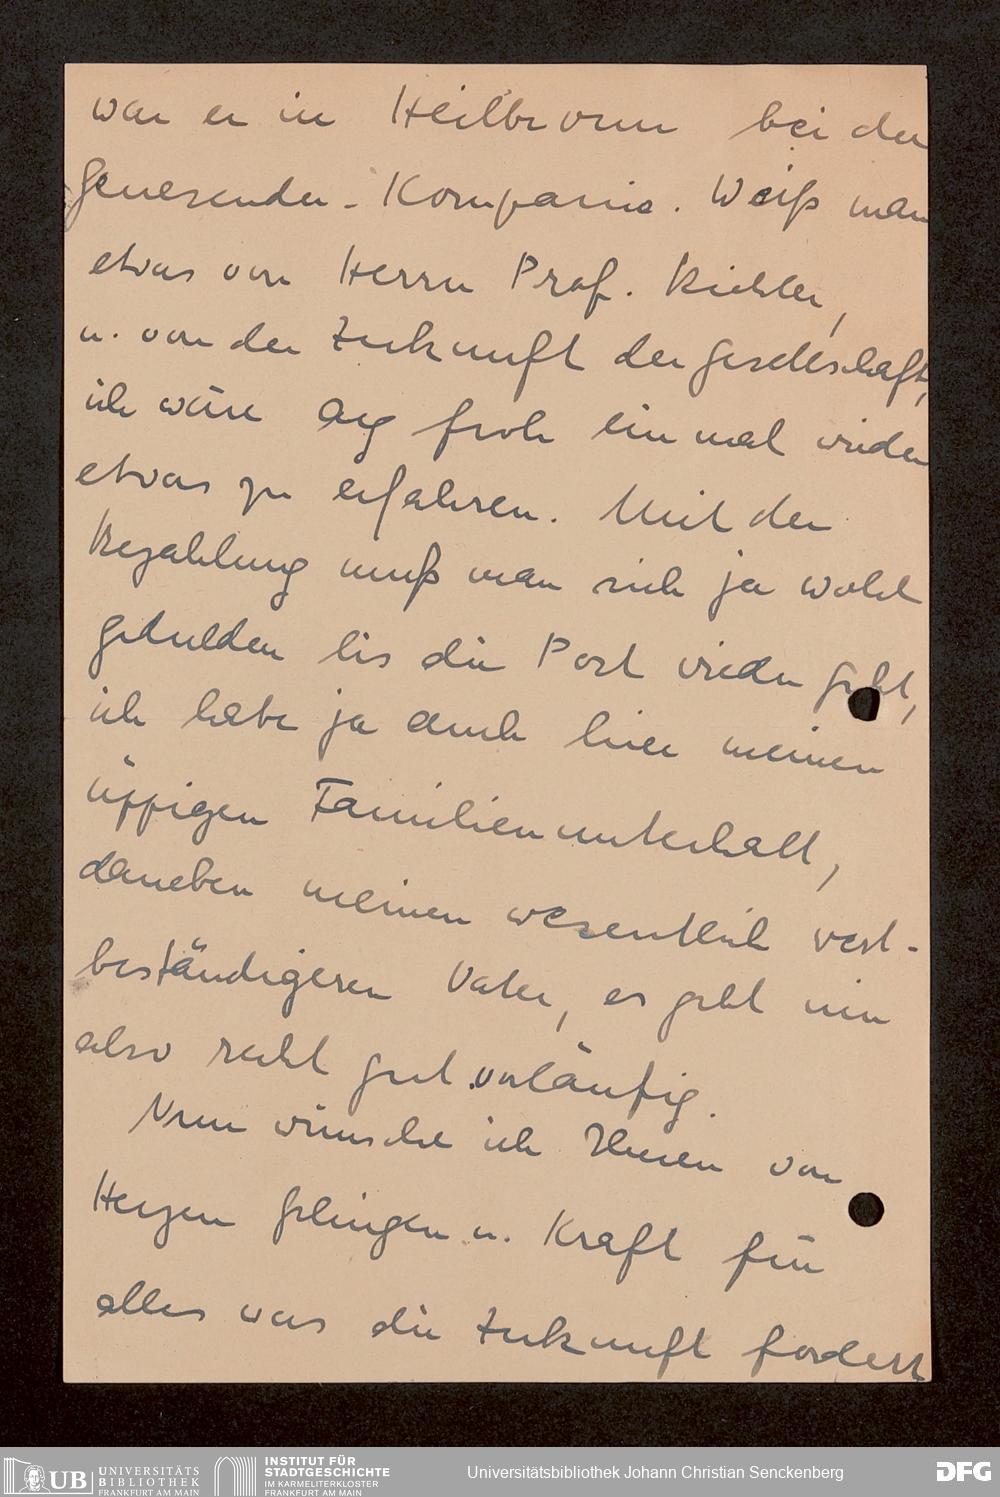 war er in Heilbronn bei der
Genesenden-Kompanie. Weiß man
etwas von Herrn Prof. Richter,
u. von der Zukunft der Gesellschaft,
ich wäre arg froh einmal wieder
etwas zu erfahren. Mit der
Bezahlung muß man sich ja wohl
gedulden bis die Post wieder geht,
ich habe ja auch hier meinen
üppigen Familienunterhalt,
daneben meinen wesentlich wert-
beständigeren Vater, es geht mir
also recht gut vorläufig.
Nun wünsche ich Ihnen von
Herzen Gelingen u. Kraft für
alles was die Zukunft fordert
UB UNIVERSITÄTS
BIBLIOTHEK
FRANKFURT AM MAIN
INSTITUT FÜR
STADTGESCHICHTE
IM KARMELITERKLOSTER
FRANKFURT AM MAIN
Universitätsbibliothek Johann Christian Senckenberg
DFG